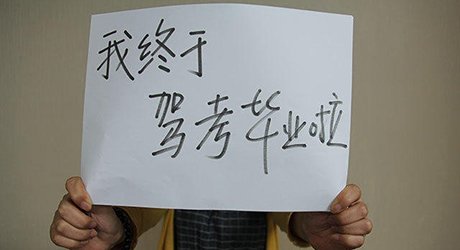 我终于
驾考毕业啦